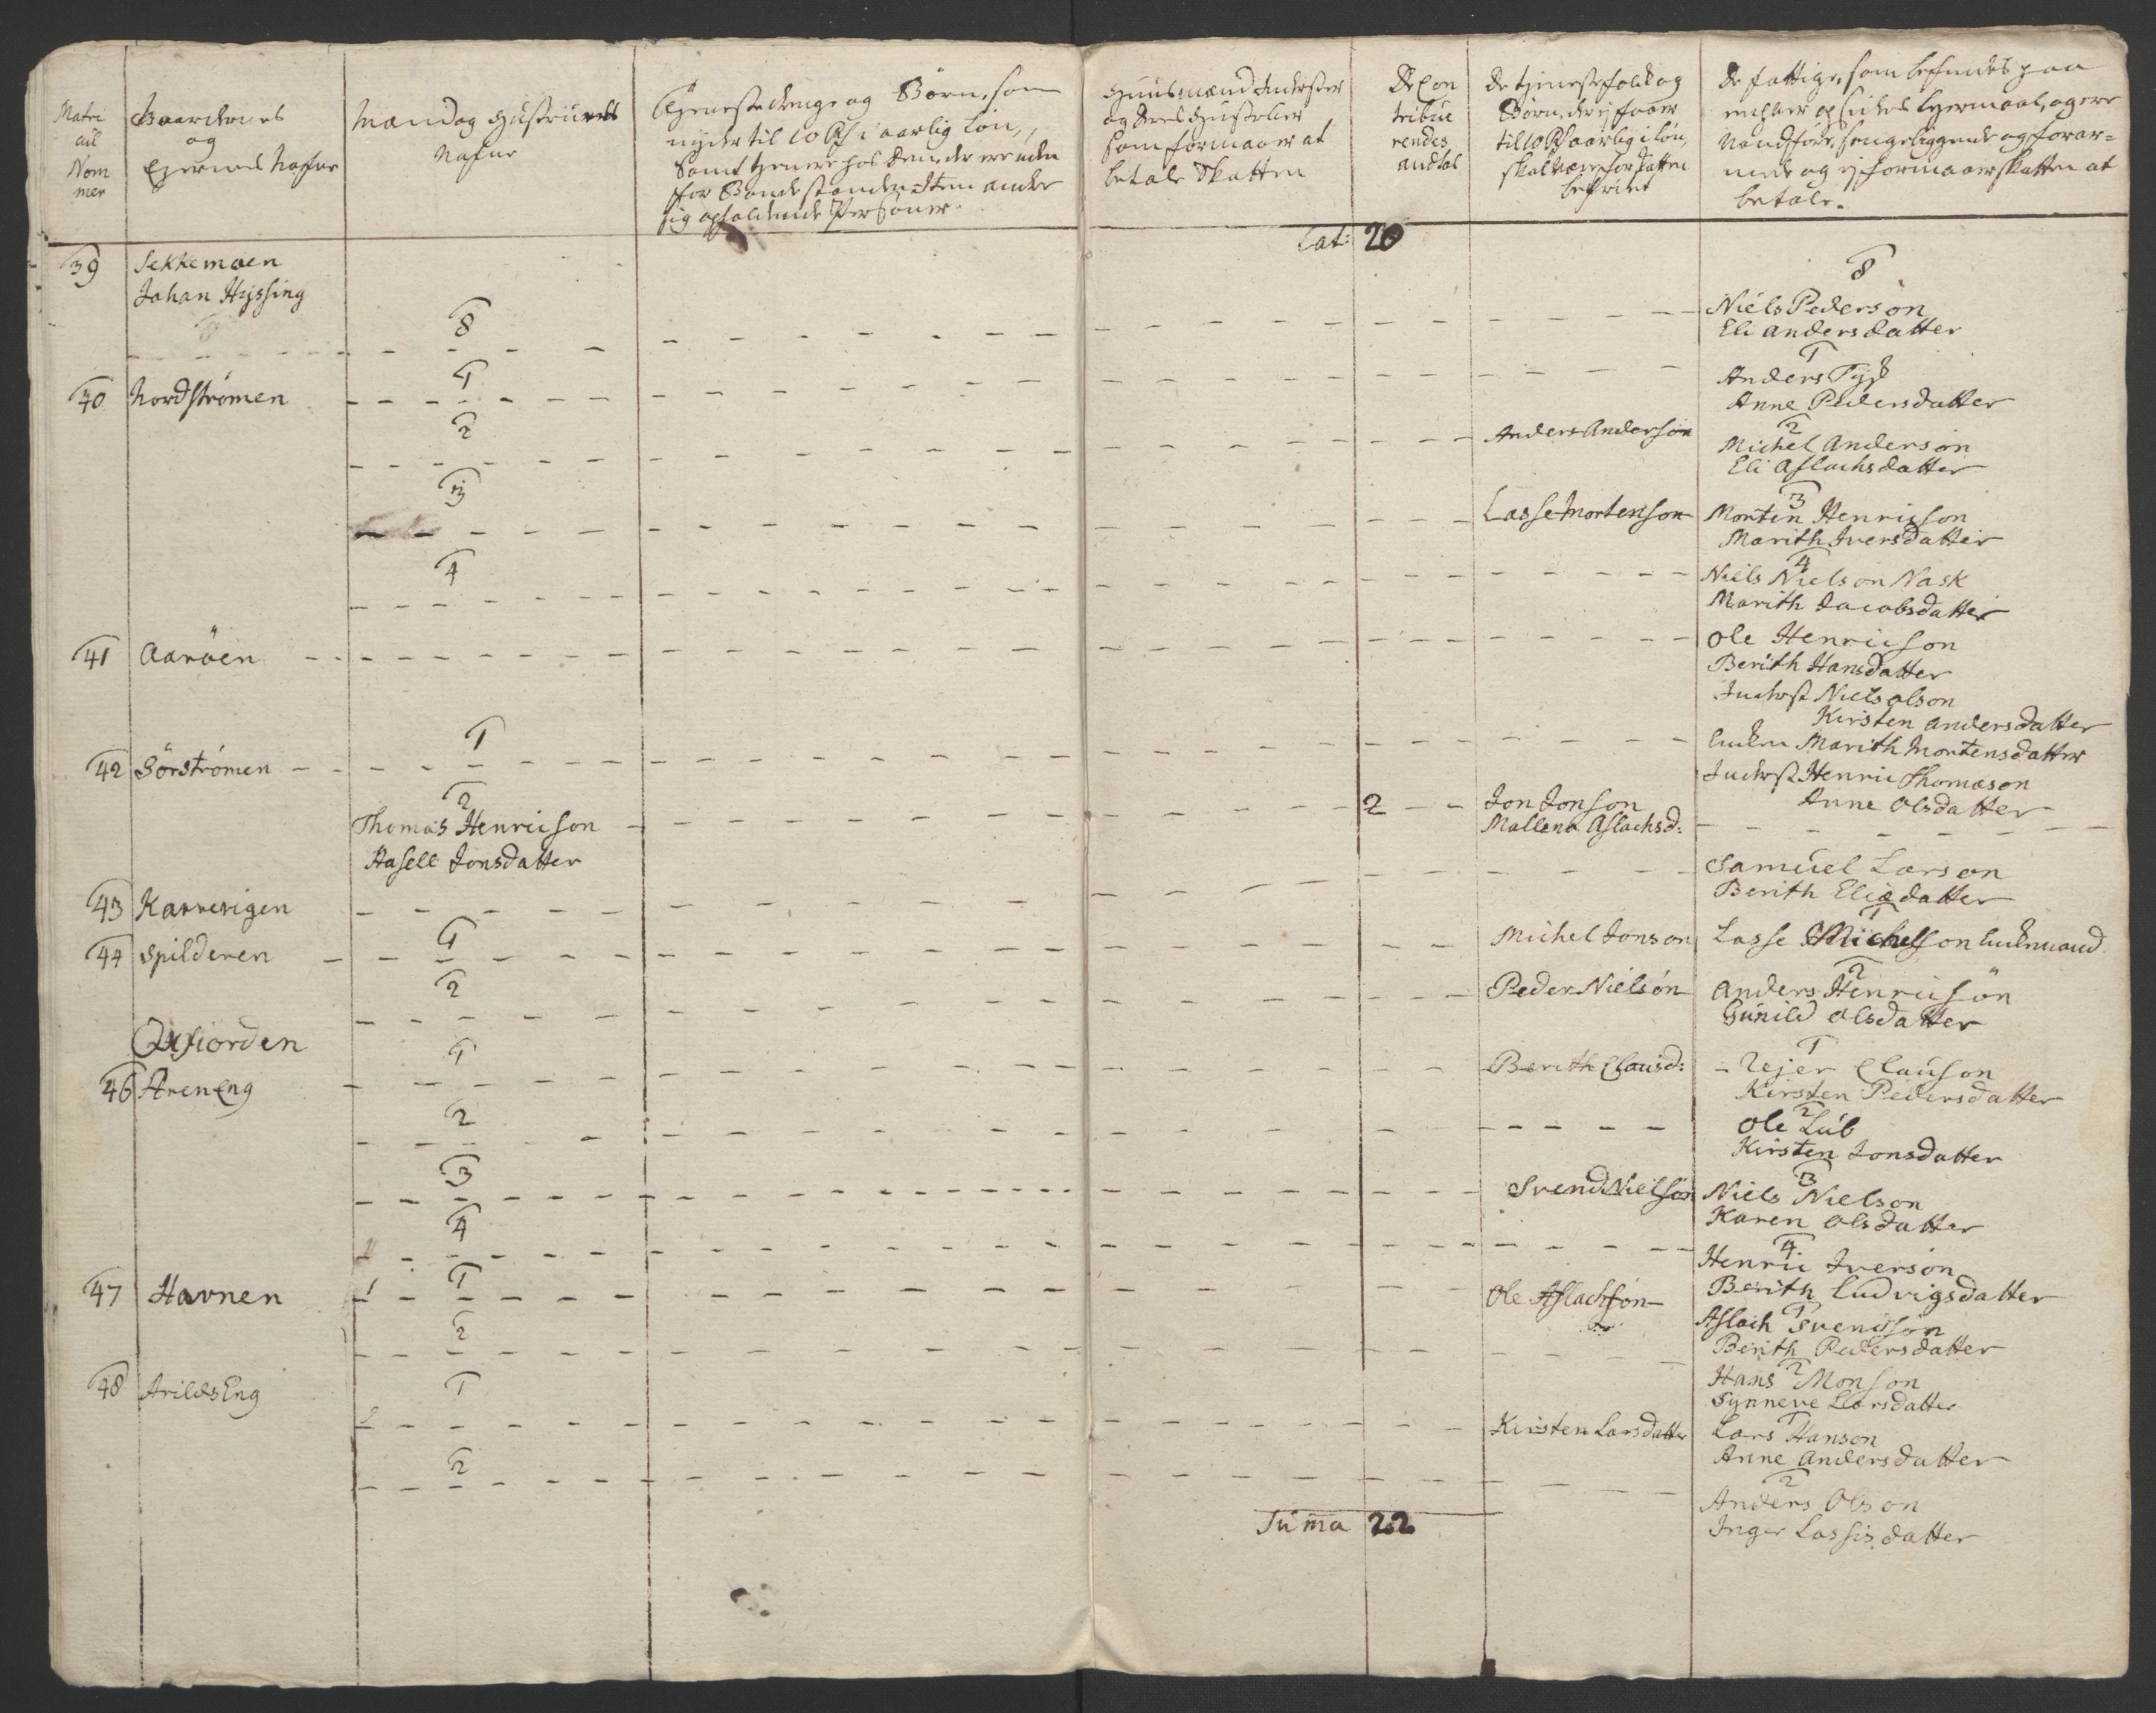 Matri
cul
Nom
mer
Gaardernes
og
Eyernes Nafne
Mand og Hustruers
Nafne
Tienestedrenge og Börn, som
nyder til 10 Rd i aarlig Lön,
Samt tienere hos dem, der ere uden
for Bondestanden, Item andre
sig opholdende Personer
Huusmænd Inderster
og deres Hustruer
som formaaer at
betale Skatten
De Con
tribue
rendes
andtal
De tienestefolk og
Börn, der ej faaer
til 10 Rd aarlig i lön,
skal være for Skatten
befriet
De fattige, som befindes paa
og ere
Vandföre, sengeliggende og forar=
mede og ej formaaer Skatten at
betale.
Lat: 20
39 Sekkemoen
Johan Hysing
8
8
Niels Pederson
Eli Andersdatter
40 Nordströmen
1
1
Anders Tysk
Anne Pedersdatter
2
Anders Anderson
2
Michel Anderson
Eli Aslachsdatter
3
Lasse Mortenson
3
Morten Henricson
Marith Iversdatter
4
4
Niels Nielson Nask
Marith Jacobsdatter
41 Aaröen
Ole Henricson
Berith Hansdatter
Inderst Niels Olson
Kirsten Andersdatter
42 Sörströmen
1
Enken Marith Mortensdatter
Inderst Henric Thomæson
Anne Olsdatter
2
Thomas Henricson
Hasele Jonsdatter
2
Jon Jonson
Mallena Aslachsd:
43 Karvevigen
Samuel Larson
Berith Eliædatter
44 Spilderen
1
Michel Jonson
1
Lasse Michelson Enkemand
2
Peder Nielsön
2
Anders Henricsön
Gunild Olsdatter
Oxfiorden
46 Areneng
1
Berith Clausd:
1
Rejer Clauson
Kirsten Pedersdatter
2
2
Ole Lub
Kirsten Jonsdatter
3
Svend Nielsön
3
Niels Nielson
Karen Olsdatter
4
4
Henric Iverson
Berith Ludvigsdatter
47 Havnen
1
Ole Aslachson
1
Aslach Svendsön
Berith Pedersdatter
2
2
Hans Monson
Synneve Larsdatter
48 Arilds Eng
1
Kirsten Larsdatter
1
Lars Hanson
Anne Andersdatter
2
2
Anders Olson
Inger Lassisdatter
Suma 22